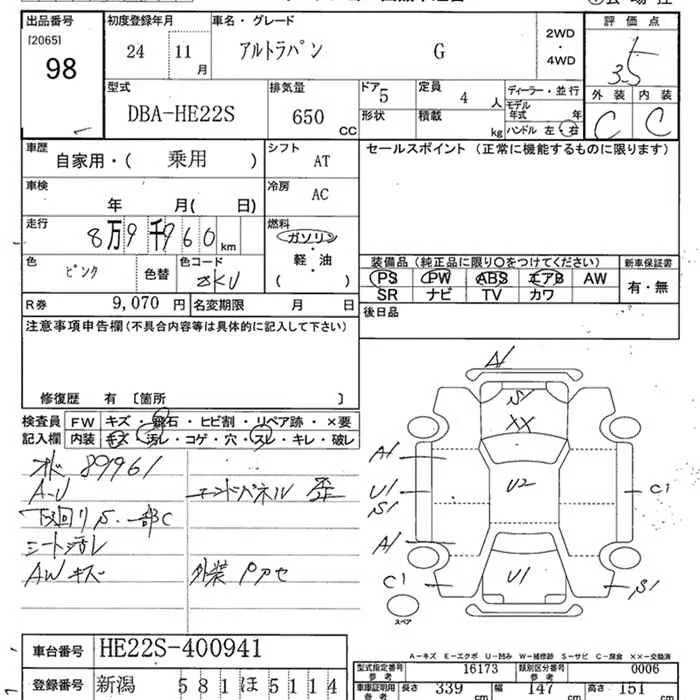 出品番号 初度登録年月 車名・グレード 評価点
[2065] 2WD
98 24 11月 アルトラパン G ・ 3.5
4WD
型式 排気量 ドア 5 定員 4人 ディーラー・並行 外装 内装
DBA-HE22S 650 CC 形状 積載 kg モデル年式 年 C C
ハンドル 左・右
車歴 自家用・( 乗用 ) シフト AT セールスポイント (正常に機能するものに限ります)
車検 年 月( 日) 冷房 AC
走行 8万9千960km 燃料 ガソリン・軽・油 ( )
色 ピンク 色替 色コード ZKU
装備品 (純正品に限り○をつけてください) 新車保証書
PS PW ABS エアB AW 有・無
SR ナビ TV カワ
R券 9,070 円 名変期限 月 日 後日品
注意事項申告欄(不具合内容等は具体的に記入して下さい)
修復歴 有 〔箇所 〕
検査員 FW キズ・飛石・ヒビ割・リペア跡・×要
記入欄 内装 キズ・汚レ・コゲ・穴・スレ・キレ・破レ
89961
A-U エンドパネル 歪
下回りS.一部C
シート汚レ
AWキズ 外装
A1
S1
XX
A1
U1 U2 C1
S1
A1
C1 U1 S1
スペア
A-キズ E-エクボ U-凹み W-補修跡 S-サビ C-腐食 ××-交換済
車台番号 HE22S-400941
登録番号 新潟 581 ほ 5114
型式指定番号 参考 16173 類別区分番号 参考 0006
車庫証明用 参考 長さ 339 cm 幅 147 cm 高さ 151 cm